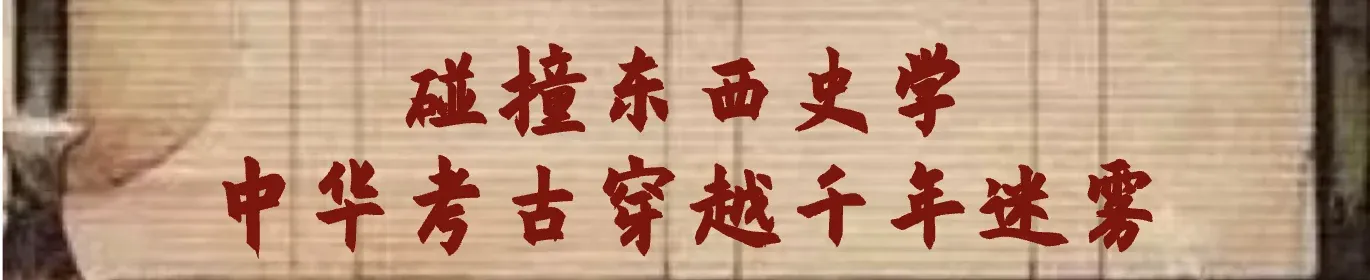 碰撞东西史学
中华考古穿越千年迷雾